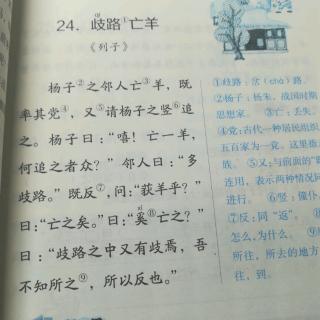 24. 歧路①亡羊
《列子》
杨子②之邻人亡③羊，既
率其党④，又⑤请杨子之竖⑥追
之。杨子曰：“嘻！亡一羊，
何追之者众？”邻人曰：“多
歧路。”既反⑦，问：“获羊乎？”
曰：“亡之矣。”曰：“奚⑧亡之？”
曰：“歧路之中又有歧焉，吾
不知所之⑨，所以反也。”
①歧路：岔（chà）路。
②杨子：杨朱，战国时期
思想家。③亡：丢失。
④党：古代一种居民组织
五百家为一党。这里指
族。⑤又：与前面的“
连用，表示两种情况同
进行。⑥竖：僮仆。
⑦反：同“返”。
怎么，为什么。⑨
所往，所去的地方
往，到。